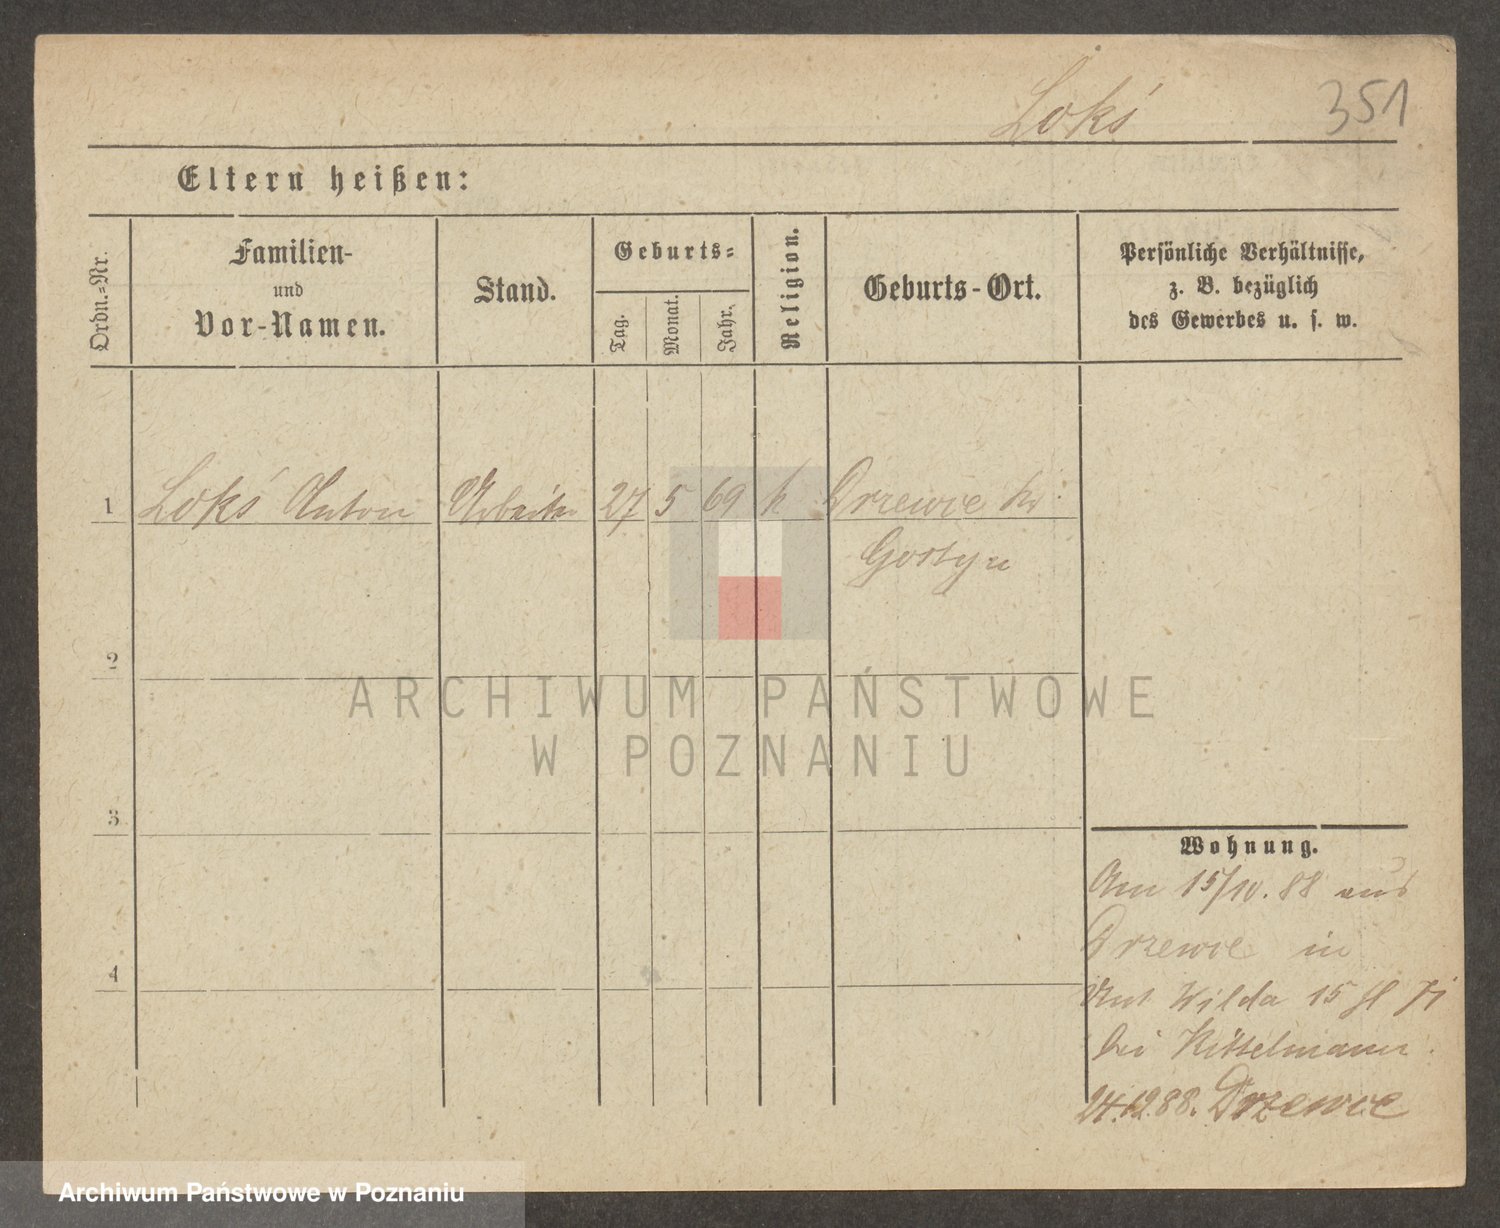 Lokś
351
Eltern heißen:
Ordn.=Nr.
Familien-
und
Vor-Namen.
Stand.
Geburts=
Tag.
Monat.
Jahr.
Religion.
Geburts-Ort.
Persönliche Verhältnisse,
z. B. bezüglich
des Gewerbes u. s. w.
1 Lokś Anton Arbeiter 27 5 69 k Drzewce Kr.
Gostyn
2
3
4
Wohnung.
Am 15/10. 88 aus
Drzewce in
Wilda 15
bei Kittelmann.
24.12.88. Drzewce
ARCHIWUM PAŃSTWOWE
W POZNANIU
Archiwum Państwowe w Poznaniu